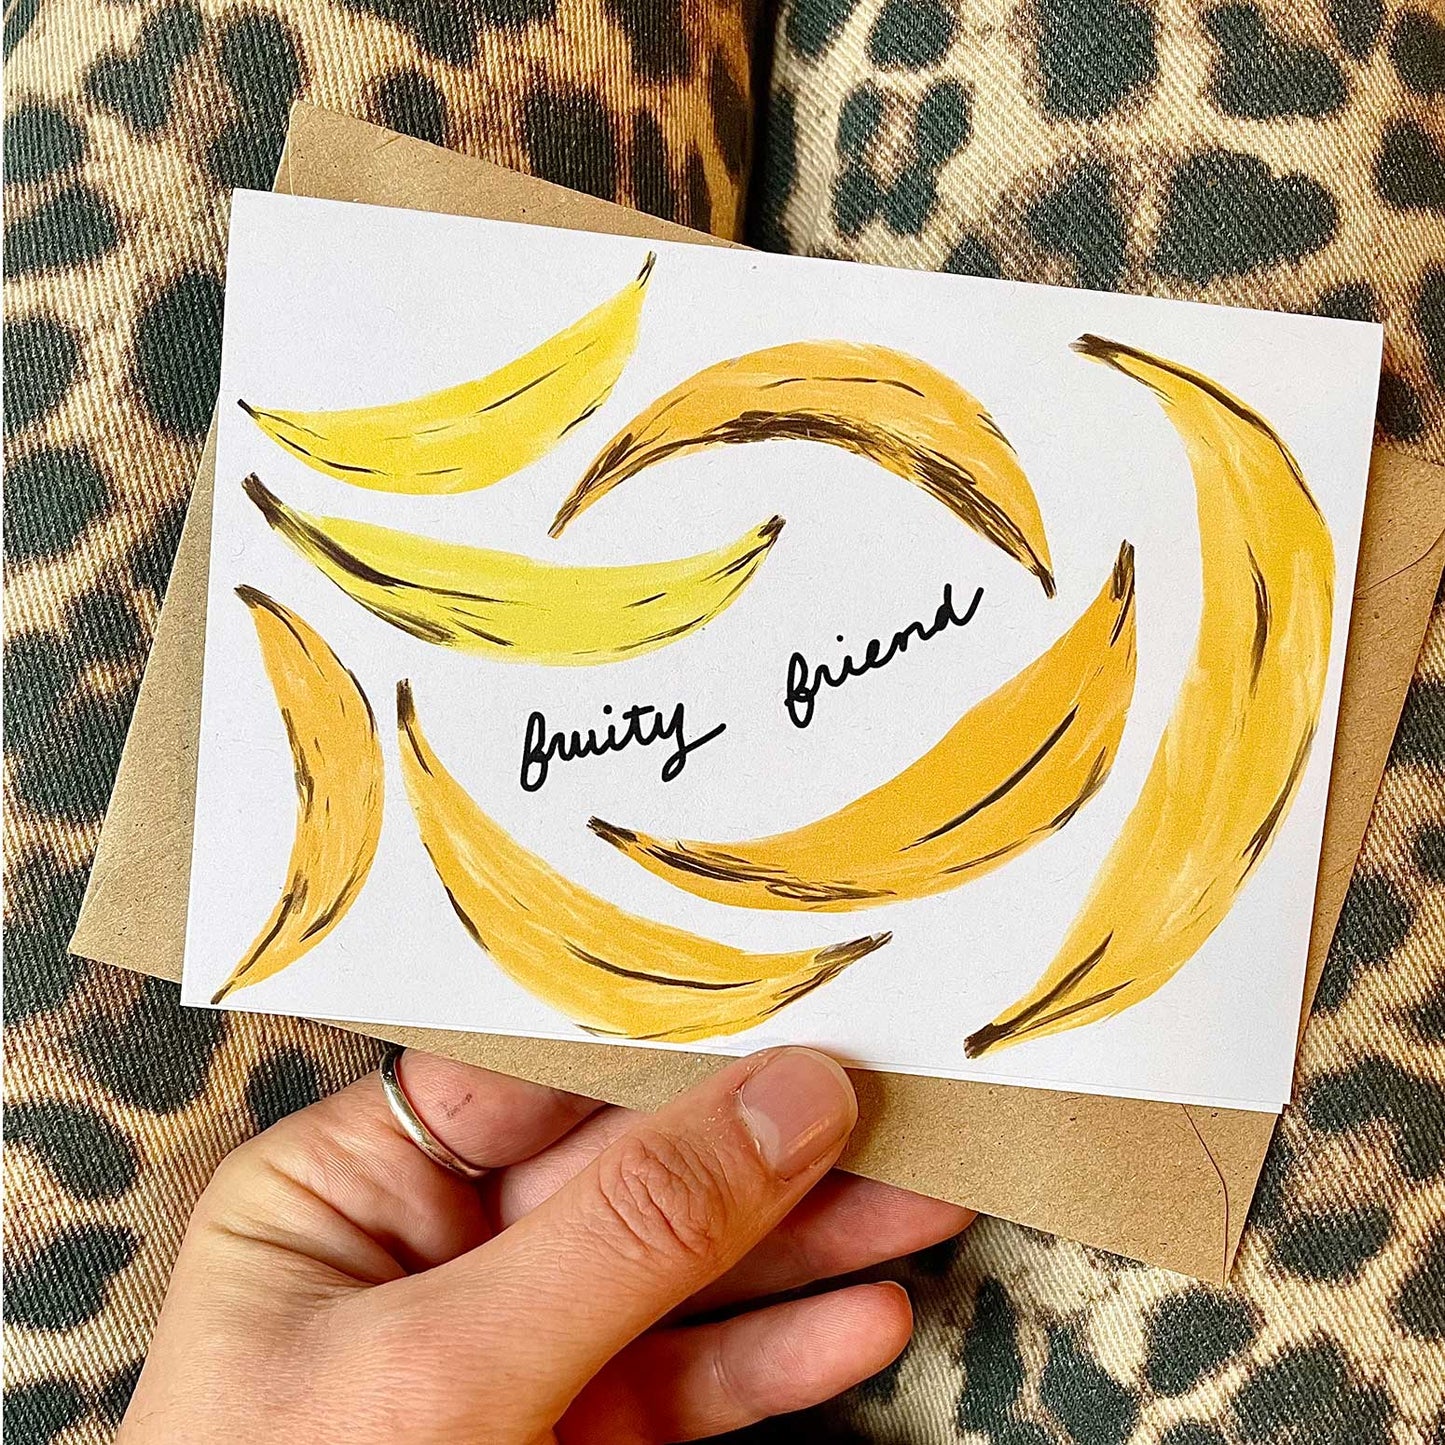 fruity friend